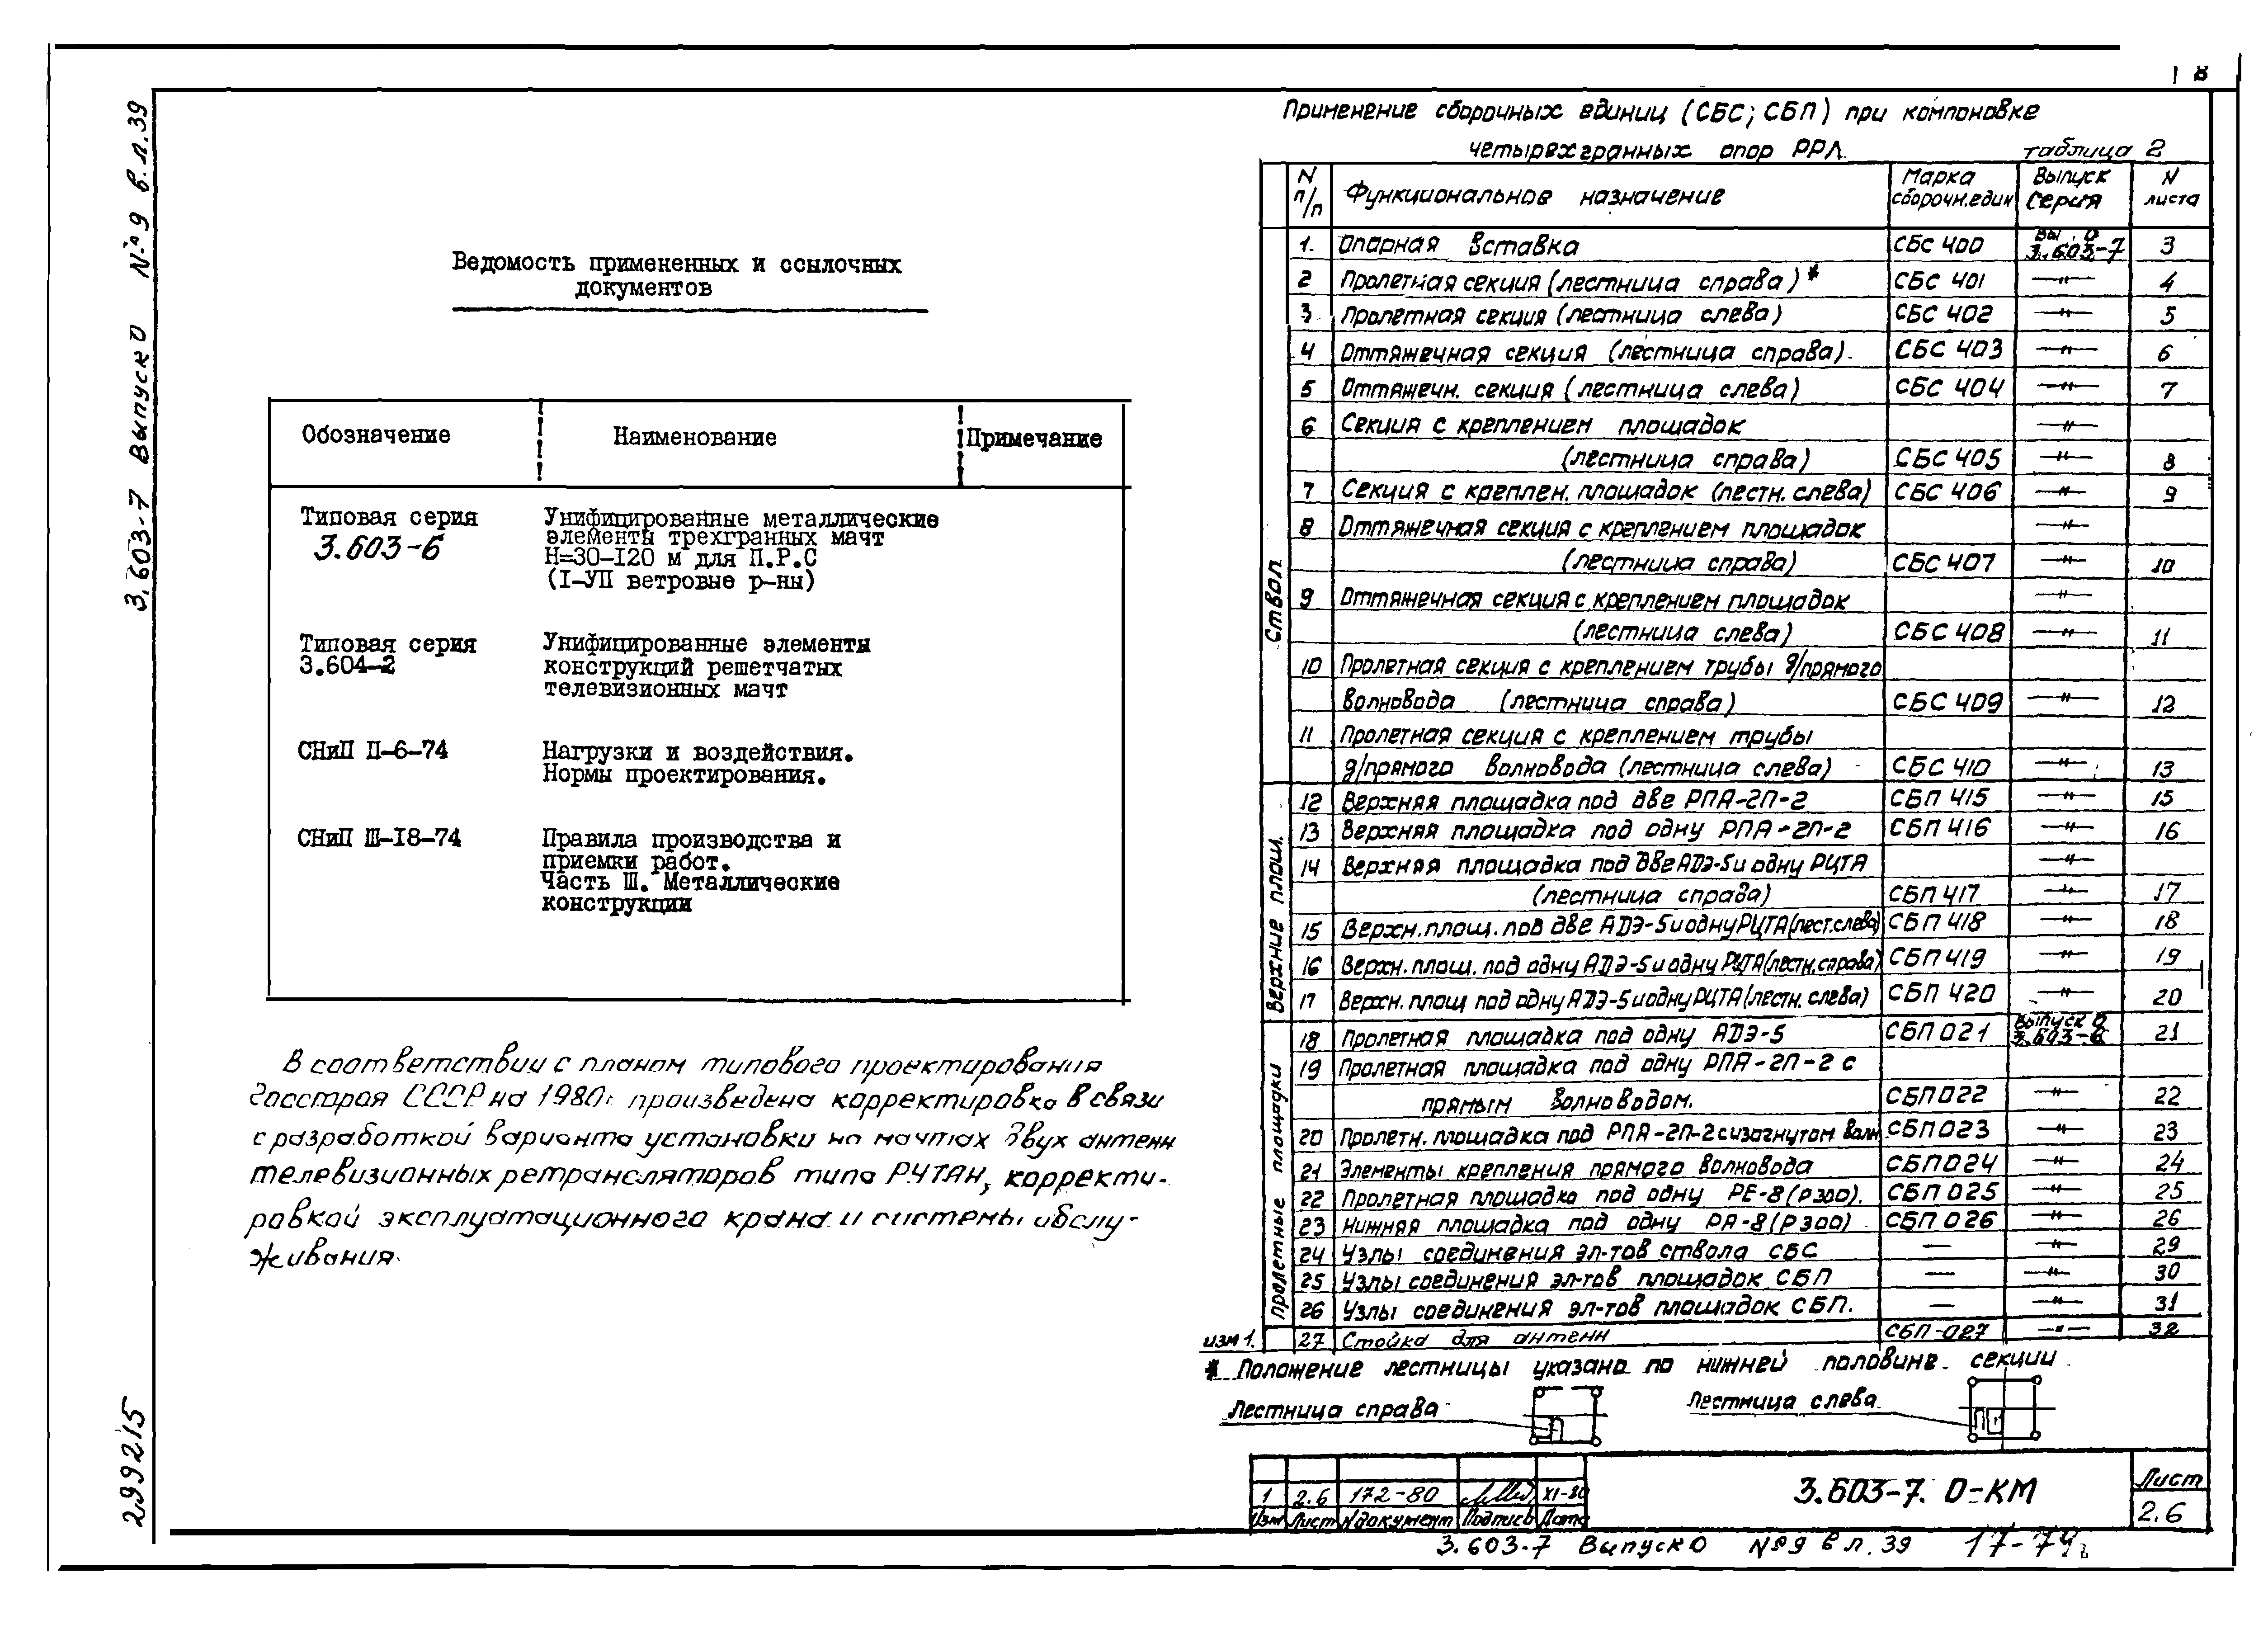 8
3.603-7 Выпуск 0 №9 в.л.39
299215
Ведомость примененных и ссылочных
документов
Обозначение Наименование Примечание
Типовая серия Унифицированные металлические
3.603-6 элементы трехгранных мачт
Н=30-120 м для П.Р.С
(I-УП ветровые р-ны)
Типовая серия Унифицированные элементы
3.604-2 конструкций решетчатых
телевизионных мачт
СНиП П-6-74 Нагрузки и воздействия.
Нормы проектирования.
СНиП Ш-18-74 Правила производства и
приемки работ.
Часть Ш. Металлические
конструкции
В соответствии с планом типового проектирования
Госстроя СССР на 1980г. произведена корректировка в связи
с разработкой варианта установки на мачтах двух антенн
телевизионных ретрансляторов типа РЧТАН, корректи-
ровкой эксплуатационного крана и системы обслу-
живания.
Применение сборочных единиц (СБС; СБП) при компоновке
четырехгранных опор РРЛ таблица 2
N п/п Функциональное назначение Марка сборочн.един Выпуск Серия N листа
Ствол
1. Опорная вставка СБС 400 Вы . 0 3.603-7 3
2 Пролетная секция (лестница справа)* СБС 401 —"— 4
3 Пролетная секция (лестница слева) СБС 402 —"— 5
4 Оттяжечная секция (лестница справа). СБС 403 —"— 6
5 Оттяжечн. секция (лестница слева) СБС 404 —"— 7
6 Секция с креплением площадок —"—
(лестница справа) СБС 405 —"— 8
7 Секция с креплен. площадок (лестн. слева) СБС 406 —"— 9
8 Оттяжечная секция с креплением площадок —"—
(лестница справа) СБС 407 —"— 10
9 Оттяжечная секция с креплением площадок —"—
(лестница слева) СБС 408 —"— 11
10 Пролетная секция с креплением трубы д/прямого
волновода (лестница справа) СБС 409 —"— 12
11 Пролетная секция с креплением трубы
д/прямого волновода (лестница слева) СБС 410 —"— 13
Верхние площ.
12 Верхняя площадка под две РПА-2П-2 СБП 415 —"— 15
13 Верхняя площадка под одну РПА-2П-2 СБП 416 —"— 16
14 Верхняя площадка под две АДЭ-5 и одну РЦТА —"—
(лестница справа) СБП 417 —"— 17
15 Верхн. площ. под две АДЭ-5 и одну РЦТА (лест. слева) СБП 418 —"— 18
16 Верхн. площ. под одну АДЭ-5 и одну РЦТА (лестн. справа) СБП 419 —"— 19
17 Верхн. площ под одну АДЭ-5 и одну РЦТА (лестн. слева) СБП 420 —"— 20
Пролетные площадки
18 Пролетная площадка под одну АДЭ-5 СБП 021 Выпуск 0 3.603-6 21
19 Пролетная площадка под одну РПА-2П-2 с
прямым волноводом. СБП 022 —"— 22
20 Пролетн. площадка под РПА-2П-2 с изогнутом волн. СБП 023 —"— 23
21 Элементы крепления прямого волновода СБП 024 —"— 24
22 Пролетная площадка под одну РЕ-8 (Р300). СБП 025 —"— 25
23 Нижняя площадка под одну РА-8 (Р300) СБП 026 —"— 26
24 Узлы соединения эл-тов ствола СБС — —"— 29
25 Узлы соединения эл-тов площадок СБП — —"— 30
26 Узлы соединения эл-тов площадок СБП. — —"— 31
изм 1. 27 Стойка для антенн СБП-027 —"— 32
* Положение лестницы указано по нижней половине секции
Лестница справа Лестница слева
1 2.6 172-80 XI-80
Изм Лист N документ Подпись Дата
3.603-7. 0-КМ
Лист
2.6
3.603-7 Выпуск 0 №9 в л.39 17-79